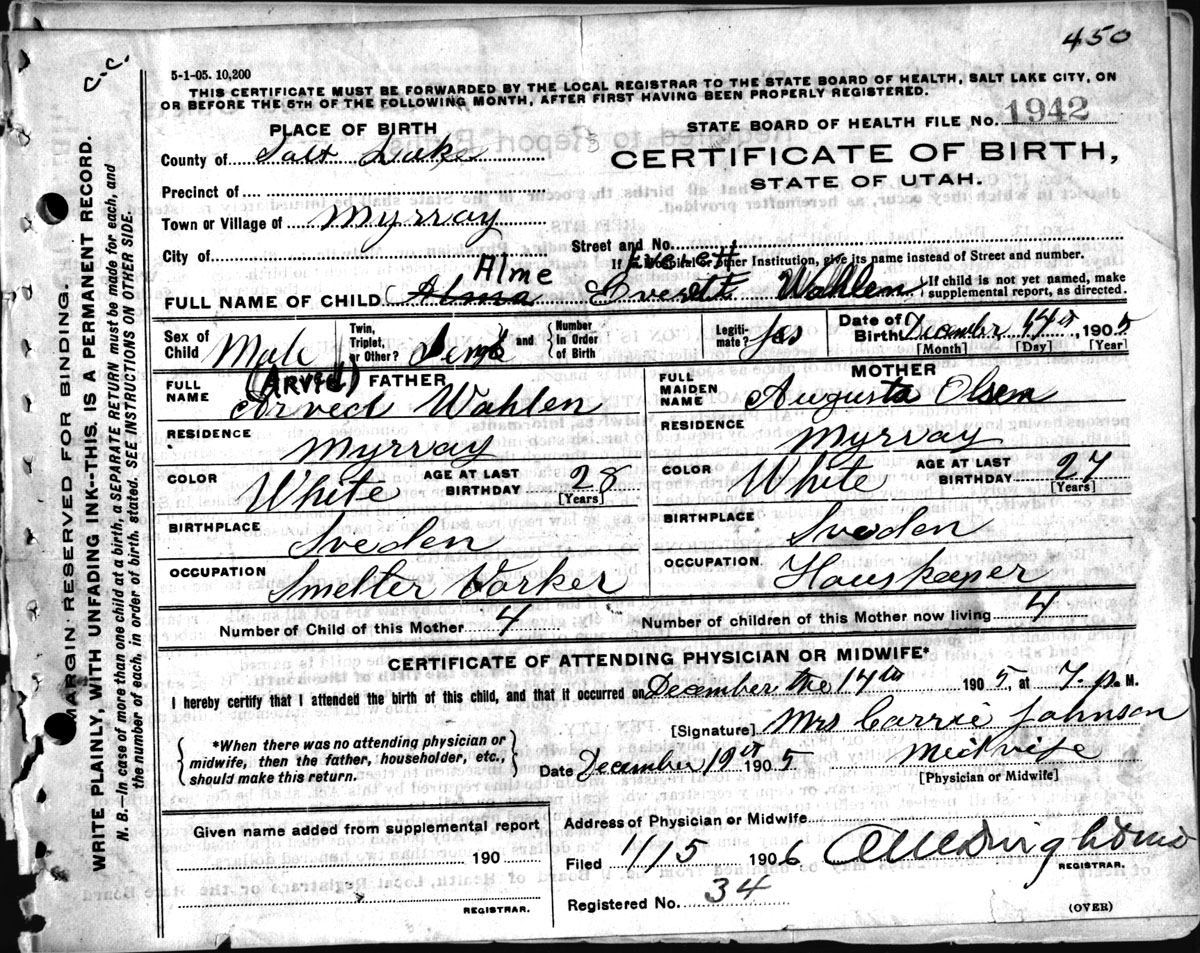 450
5-1-05. 10,200
C.C.
THIS CERTIFICATE MUST BE FORWARDED BY THE LOCAL REGISTRAR TO THE STATE BOARD OF HEALTH, SALT LAKE CITY, ON
OR BEFORE THE 5TH OF THE FOLLOWING MONTH, AFTER FIRST HAVING BEEN PROPERLY REGISTERED.
MARGIN RESERVED FOR BINDING.
WRITE PLAINLY, WITH UNFADING INK--THIS IS A PERMANENT RECORD.
N. B.—In case of more than one child at a birth, a SEPARATE RETURN must be made for each, and
the number of each, in order of birth, stated. SEE INSTRUCTIONS ON OTHER SIDE.
PLACE OF BIRTH
STATE BOARD OF HEALTH FILE NO. 1942
County of Salt Lake
CERTIFICATE OF BIRTH,
STATE OF UTAH.
Precinct of
Town or Village of Myrray
Street and No.
City of
If Hospital or other Institution, give its name instead of Street and number.
Alme Everett
FULL NAME OF CHILD (Alma Everett Wahlen
If child is not yet named, make
supplemental report, as directed.
Sex of Child Male
Twin, Triplet, or Other? and Number in Order of Birth
Legitimate? Yes
Date of Birth December 14th 1905
[Month] [Day] [Year]
(ARVID) FATHER
FULL NAME Arved Wahlen
RESIDENCE Myrray
COLOR White AGE AT LAST BIRTHDAY 28
[Years]
BIRTHPLACE Sveden
OCCUPATION Smelter Vorker
MOTHER
FULL MAIDEN NAME Augusta Olsen
RESIDENCE Myrray
COLOR White AGE AT LAST BIRTHDAY 27
[Years]
BIRTHPLACE Sveden
OCCUPATION Houskeeper
Number of Child of this Mother 4 Number of children of this Mother now living 4
CERTIFICATE OF ATTENDING PHYSICIAN OR MIDWIFE*
I hereby certify that I attended the birth of this child, and that it occurred on December the 14th 1905, at 7. p. M.
[Signature] Mrs Carrie Johnson
*When there was no attending physician or
midwife, then the father, householder, etc.,
should make this return.
Date December 19th 1905
Midvife
[Physician or Midwife]
Given name added from supplemental report
190
REGISTRAR.
Address of Physician or Midwife
Filed 1/5 1906
REGISTRAR.
Registered No. 34
(OVER)